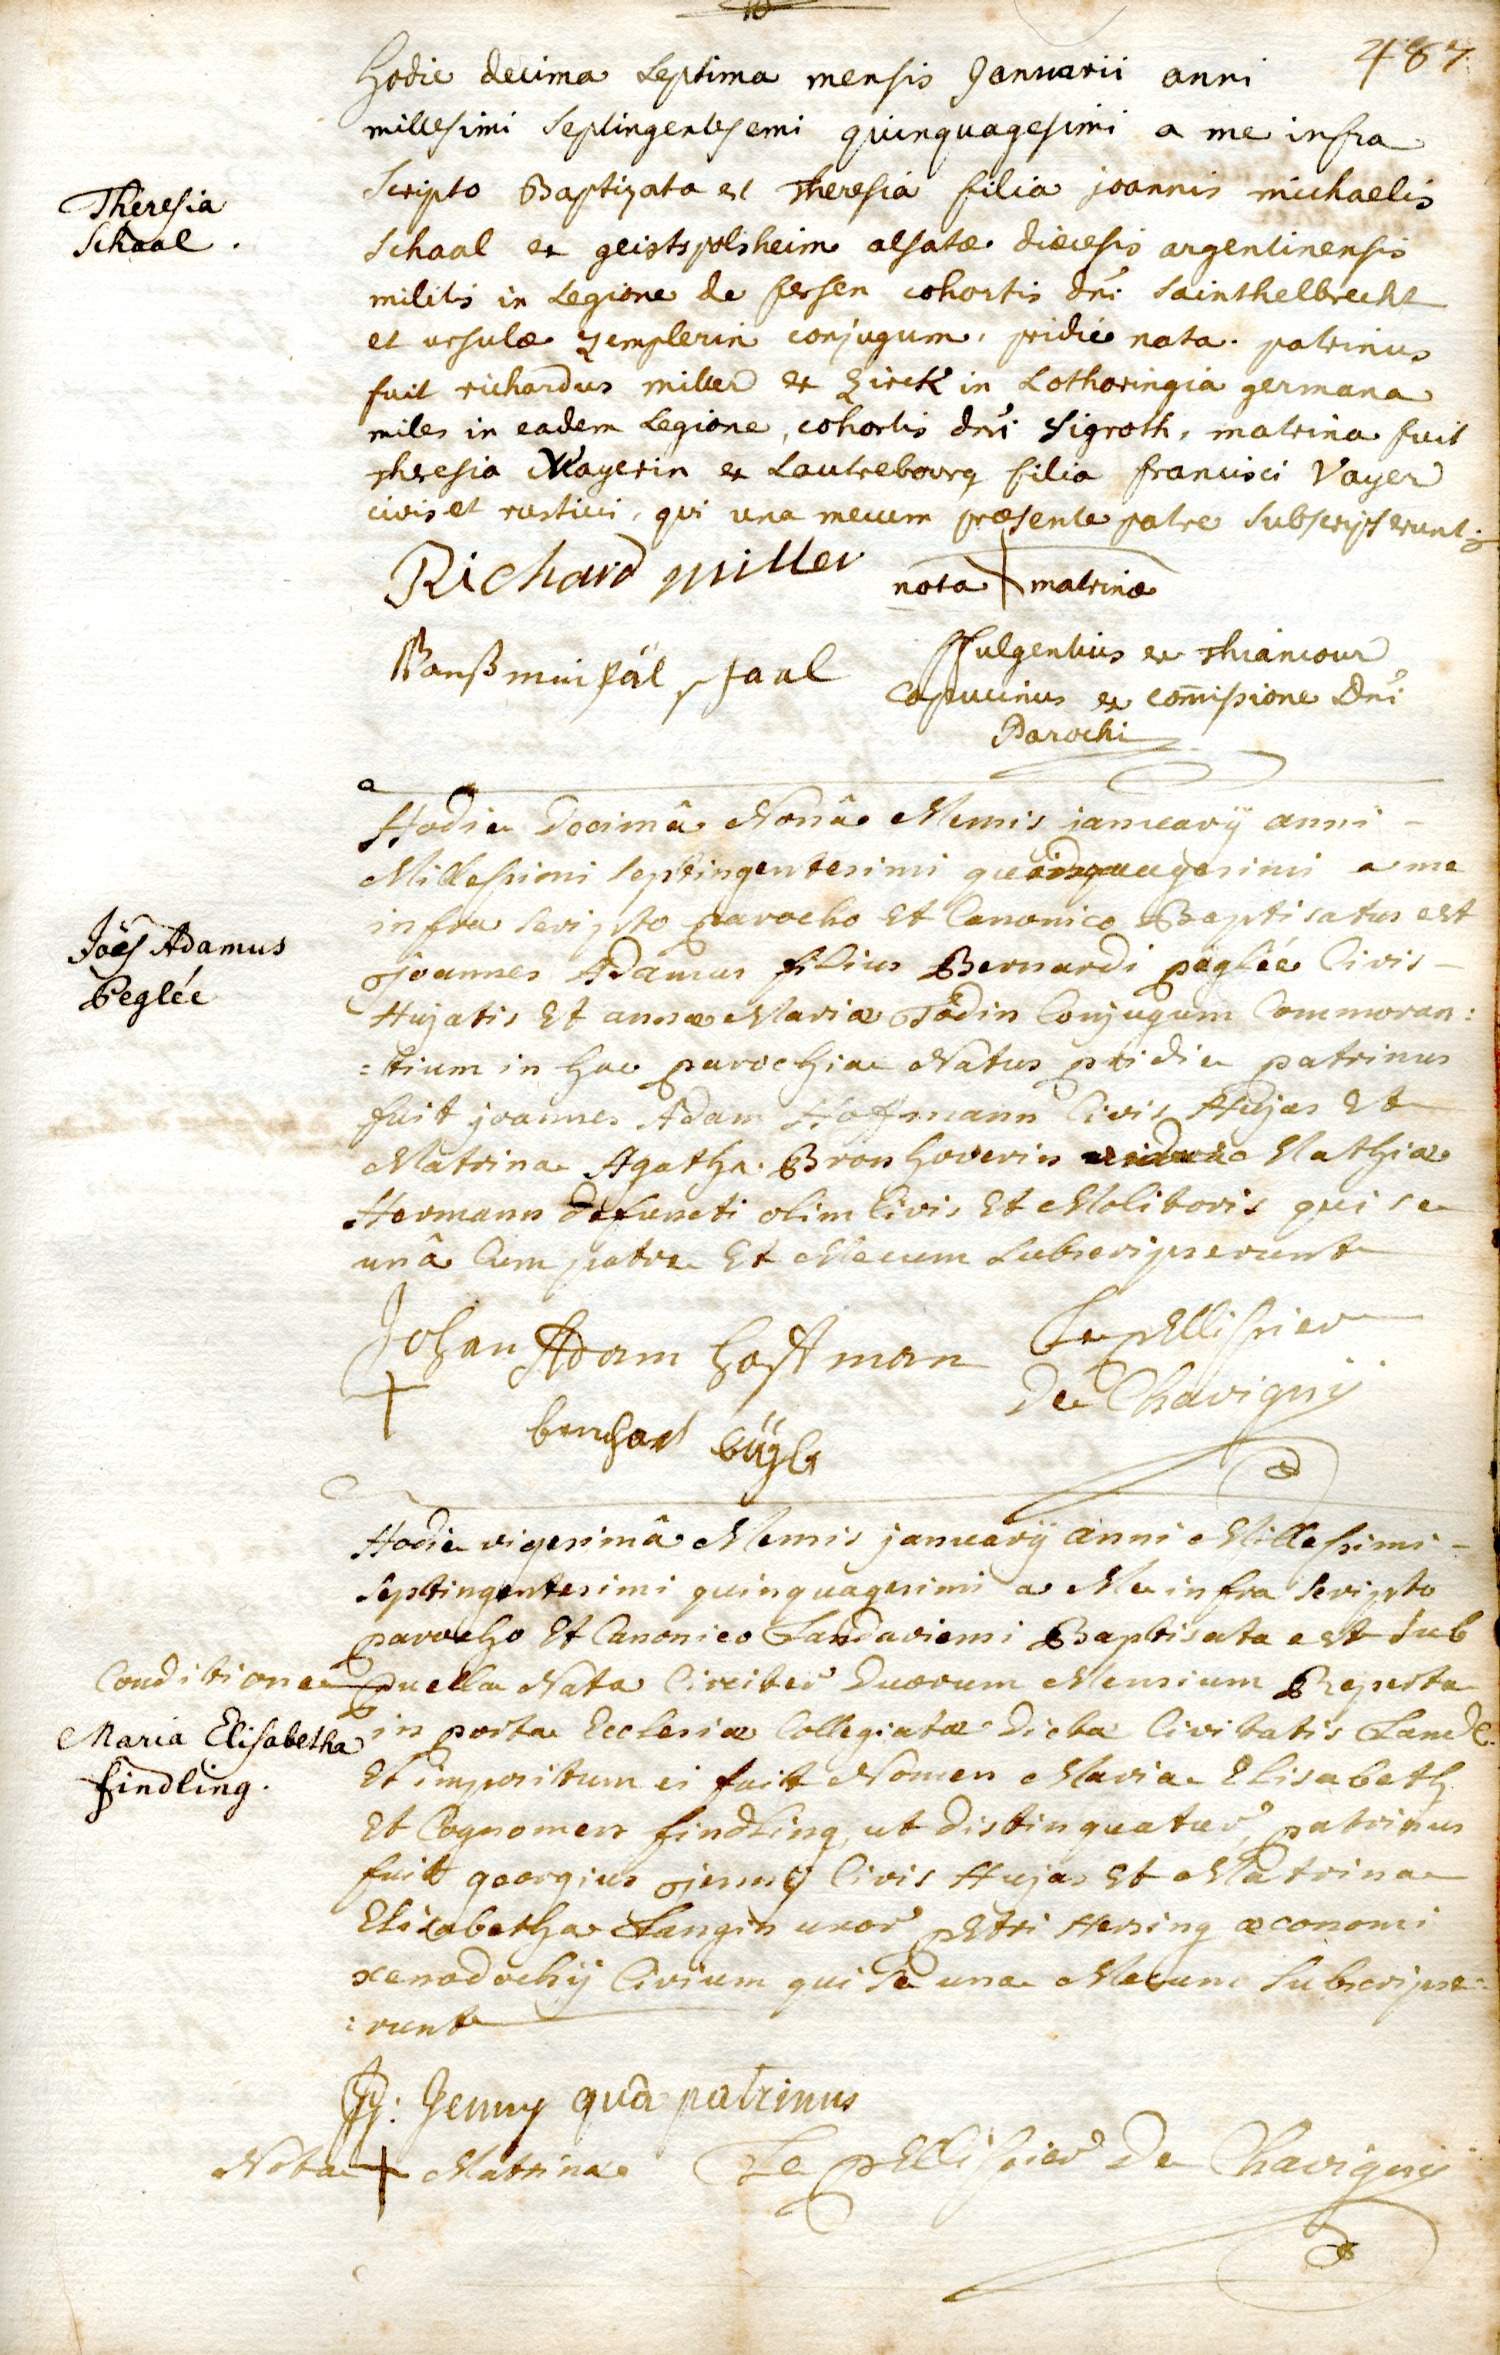 487
Hodie decima septima mensis Januarii anni
millesimi septingentesemi quinquagesimi a me infra
Theresia
Schaal.
scripto Baptizata est Theresia filia joannis michaelis
schaal ex geistspolsheim alsatæ diœcesis argentinensis
militis in Legione de fersen cohortis dni sainthelbrecht
et ursulæ zemplerin conjugum, pridie nata. patrinus
fuit richardus miller ex zirck in Lotharingia germana
miles in eadem Legione, cohortis dni sigroth, matrina fuit
theresia Mayerin ex Lautrebourg filia francisci Vayer
civis et rustici, qui una mecum præsente patre subscripserunt
Richard Miller nota + matrinæ
ffulgentius ex thiancour
Capucinus ex comissione Dni
Parochi
Hodie Decimâ Nonâ Mensis januarÿ anni -
Millessimi septingentesimi quinquagesimi a me
Joës Adamus
Peglée
infra scripto parocho Et Canonico Baptisatus est
Joannes Adamus filius Bernardi peglée Civis -
Hujatis Et annæ Mariæ Tödin Conjugum Commoran:
=tium in hac parochia Natus pridie patrinus
fuit joannes Adam Hoffmann Civis Hujas Et
Matrina Agatha Bronhoverin vidua Mathiæ
Hermann defuncti olim Civis Et Molitoris qui se
unâ Cum patre Et Mecum subscripserunt
Johan Adam Hoffman Le pEllissier
+ De Chavignÿ
Hodie vigesimâ Mensis januarÿ anni Millessimi -
septingentesimi quinquagesimi a Me infra scripto
parocho Et Canonico Landaviensi Baptisata est sub
Conditione puella Nata Circiter Duorum Mensium Reperta
Maria Elisabetha
findling.
in porta Ecclesiæ Collegiatæ dictæ Civitatis Land:
Et impositum ei fuit Nomen Maria Elisabeth
Et Cognomen findling, ut distinguatur, patrinus
fuit georgius jenny Civis Hujas Et Matrina
Elisabetha Langin uxor pEtri Hering œconomi
xenodochÿ Civium qui se una Mecum subscripse=
=runt
JG: Jenny quà patrinus
Nota + Matrinæ Le pEllissier De Chavignÿ